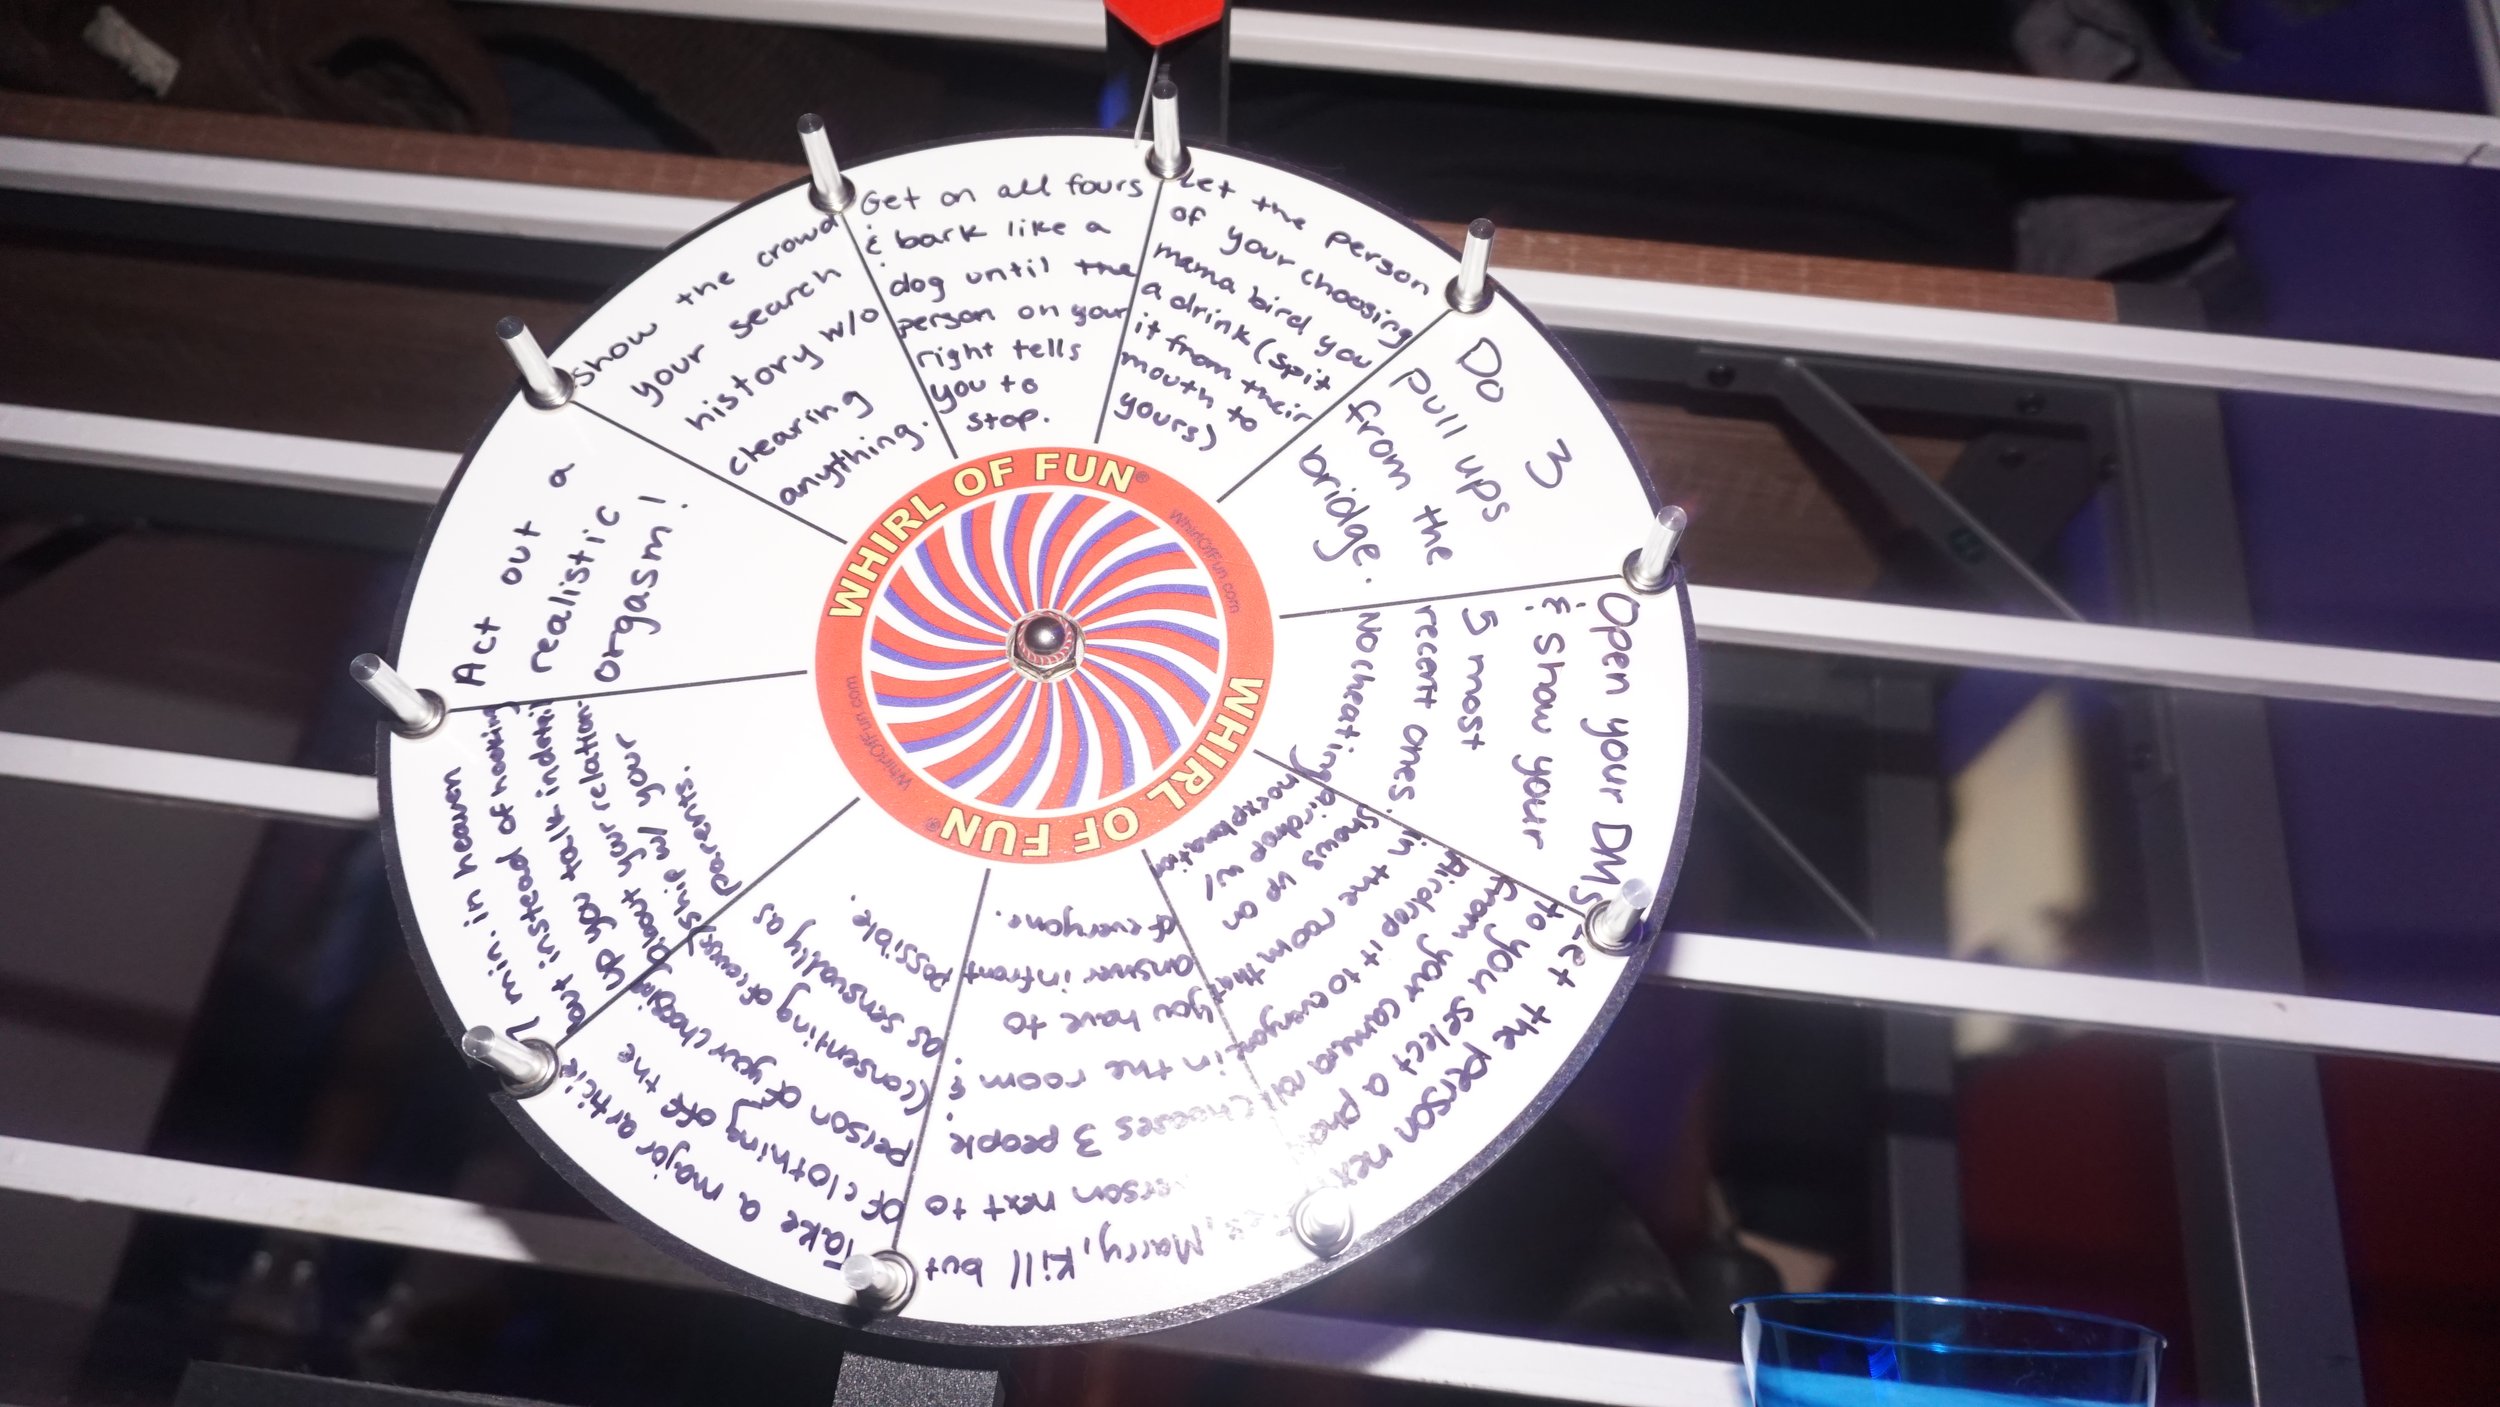 Get on all fours
& bark like a
dog until the
person on your
right tells
you to
stop.
Let the person
of your choosing
mama bird you
a drink (spit
it from their
mouth to
yours)
Do 3
pull ups
from the
bridge.
Open your DMs
& Show your
5 most
recent ones.
No cheating
Let the person next
to you select a photo
from your camera roll
Airdrop it to everyone
in the room that
shows up on
airdrop w/
no explanation
Marry, Kill but
person next to
chooses 3 people
in the room &
you have to
answer in front
of everyone.
Take a major article
of clothing off the
person of your choosing
(consenting of course)
as sensually as
possible.
7 min. in heaven
but instead of hooking
up you talk in detail
about your relation-
ship w/ your
parents.
Act out a
realistic
orgasm!
Show the crowd
your search
history w/o
clearing
anything.
WHIRL OF FUN®
WhirlOfFun.com
WHIRL OF FUN®
WhirlOfFun.com